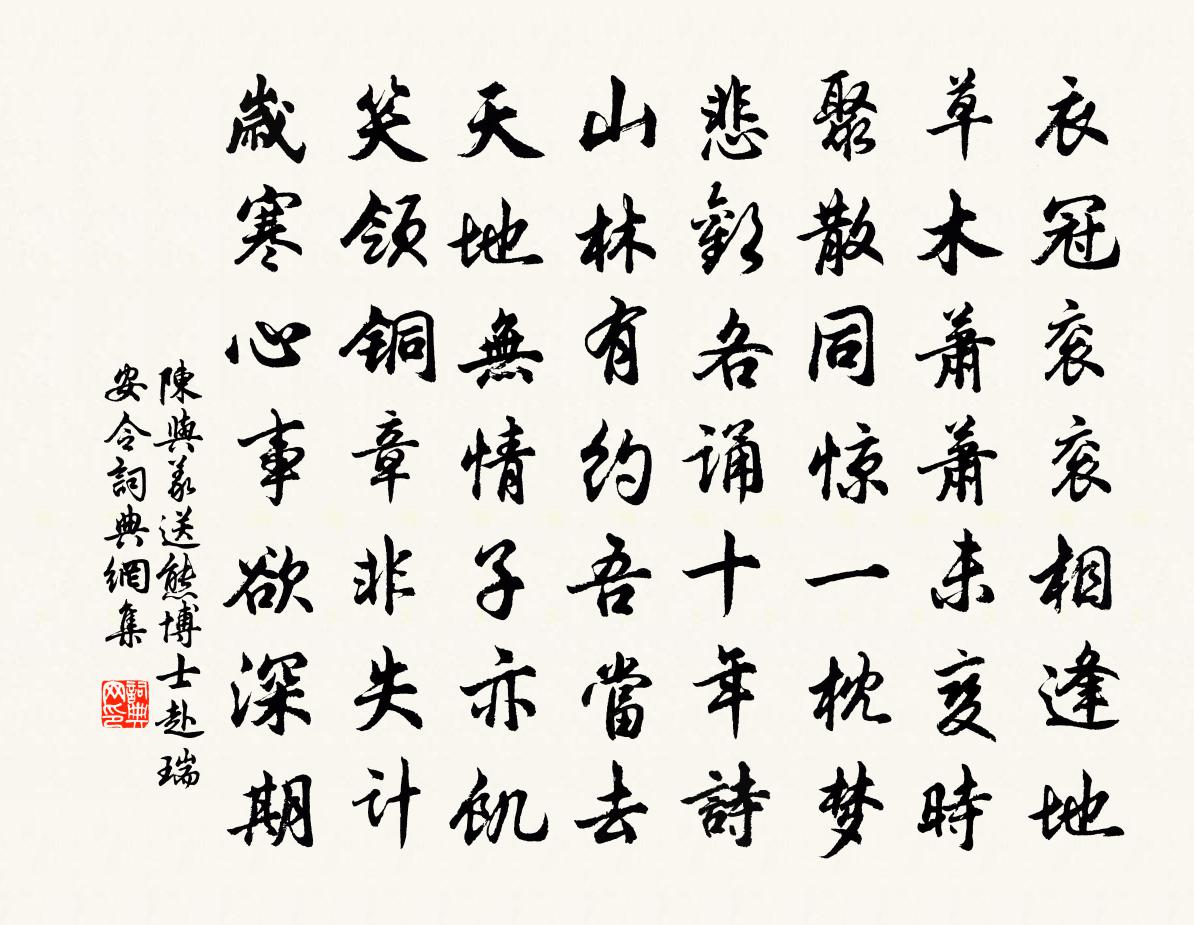 衣冠衮衮相逢地
草木萧萧未变時
聚散同惊一枕梦
悲歡各诵十年詩
山林有约吾當去
天地無情子亦飢
笑领铜章非失计
歲寒心事欲深期
陳與義送熊博士赴瑞
安令詞典網集
詞典
网印